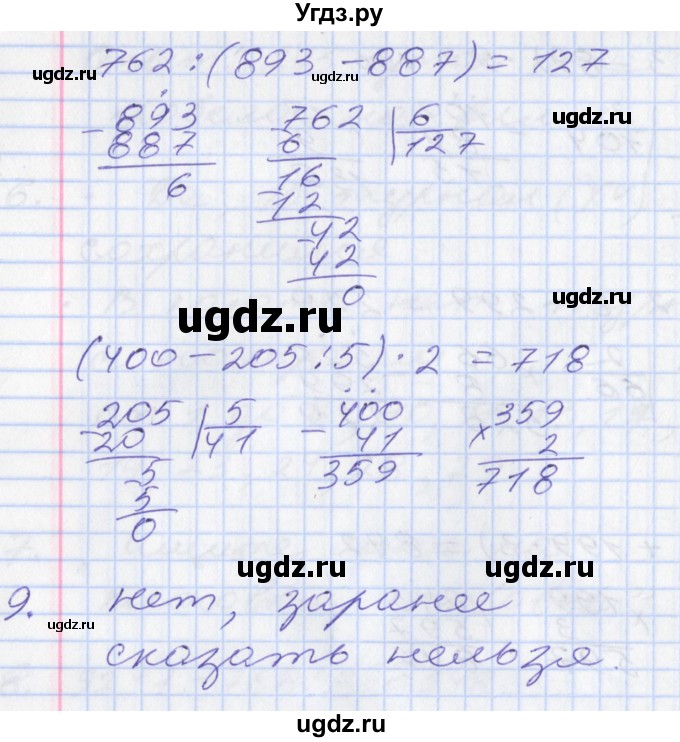 Угдз.ру
762 : (893 - 887) = 127
893
- 887
6
762 | 6
127
- 6
16
- 12
42
- 42
0
(400 - 205 : 5) · 2 = 718
205 | 5
41
- 20
5
- 5
0
400
- 41
359
359
× 2
718
9. нет, заранее
сказать нельзя.
ugdz.ru
ugdz.ru
ugdz.ru
ugdz.ru
ugdz.ru
ugdz.ru
ugdz.ru
ugdz.ru
ugdz.ru
ugdz.ru
ugdz.ru